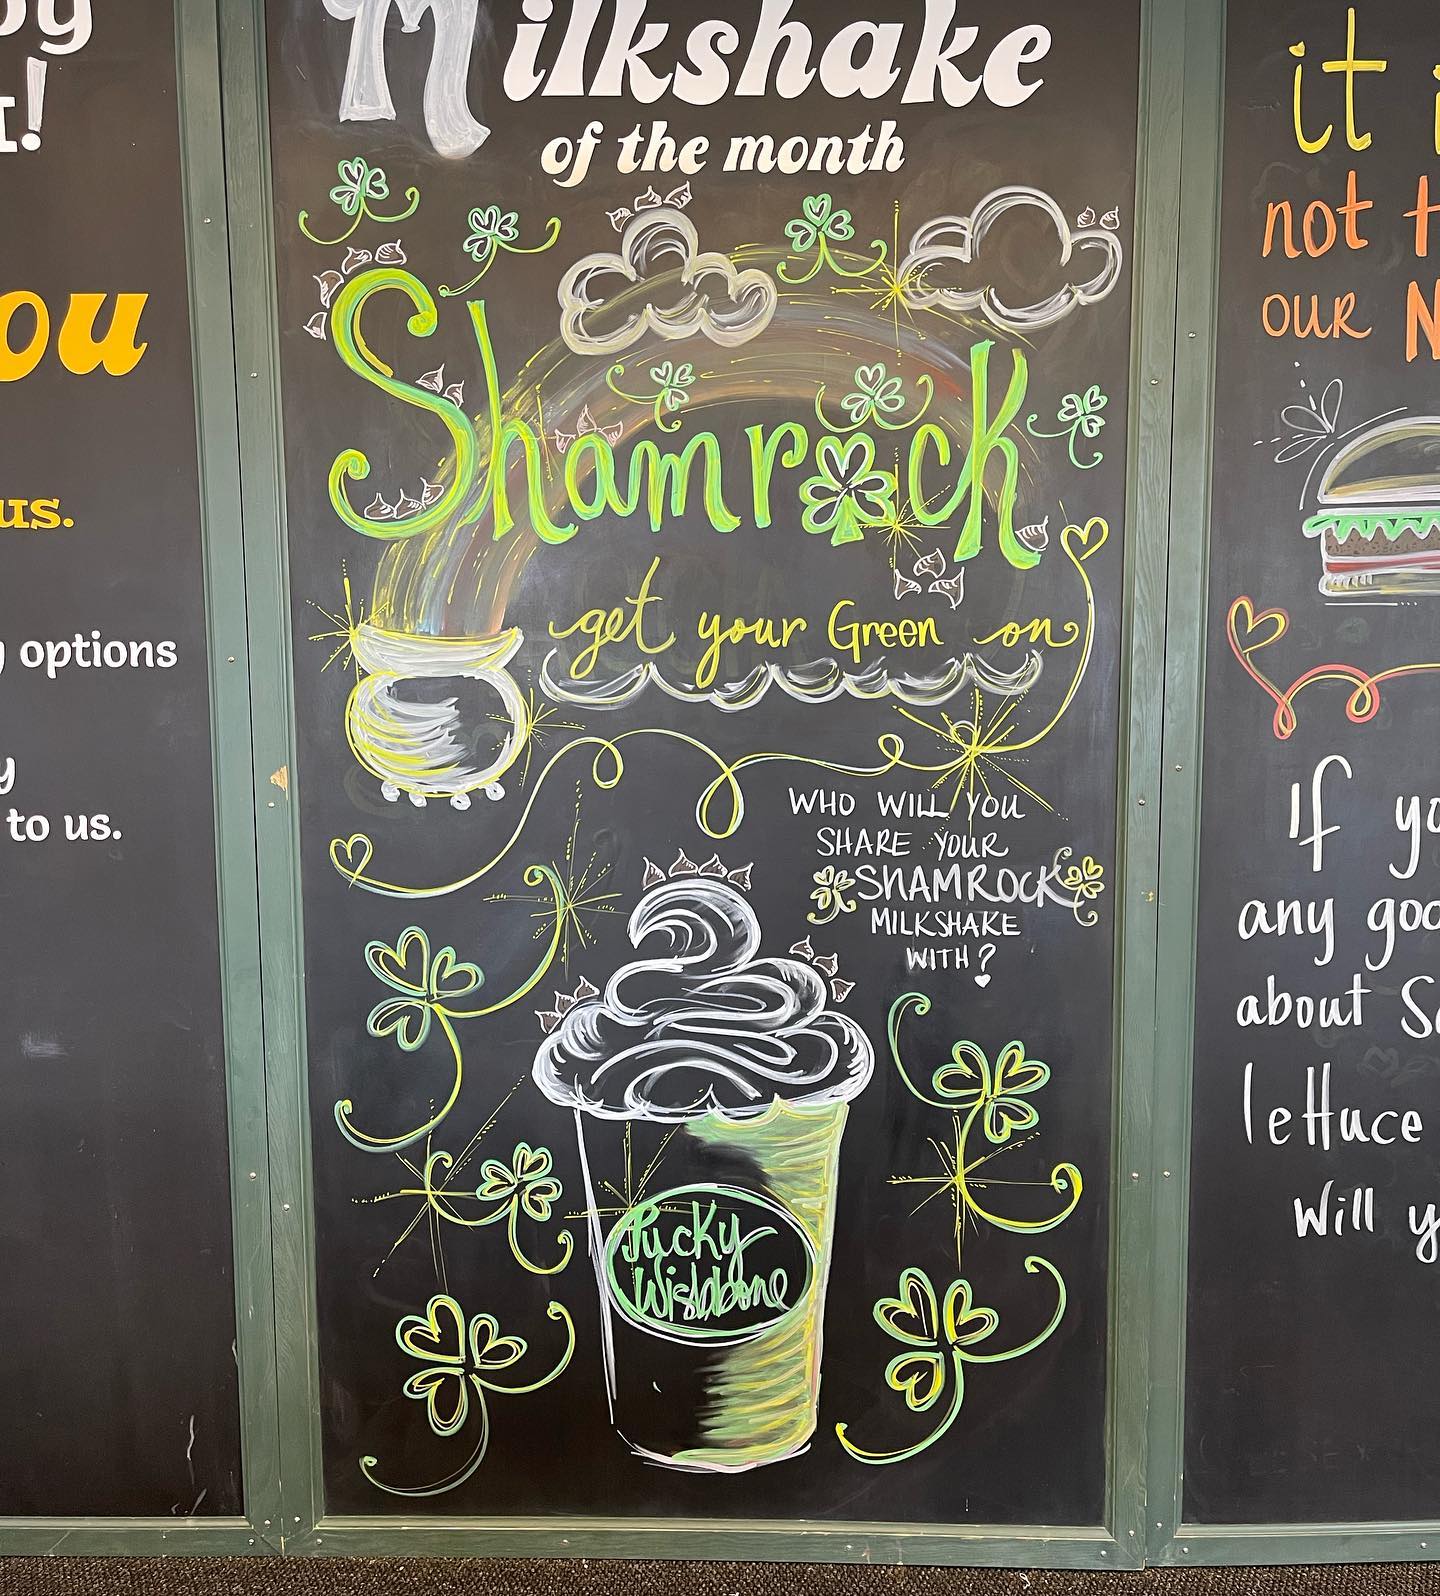 Milkshake
of the month
Shamrock
get your Green on
WHO WILL YOU
SHARE YOUR
SHAMROCK
MILKSHAKE
WITH?
Lucky
Wishbone
ou
us.
options
to us.
it
not
OUR
If
any
about
lettuce
Will